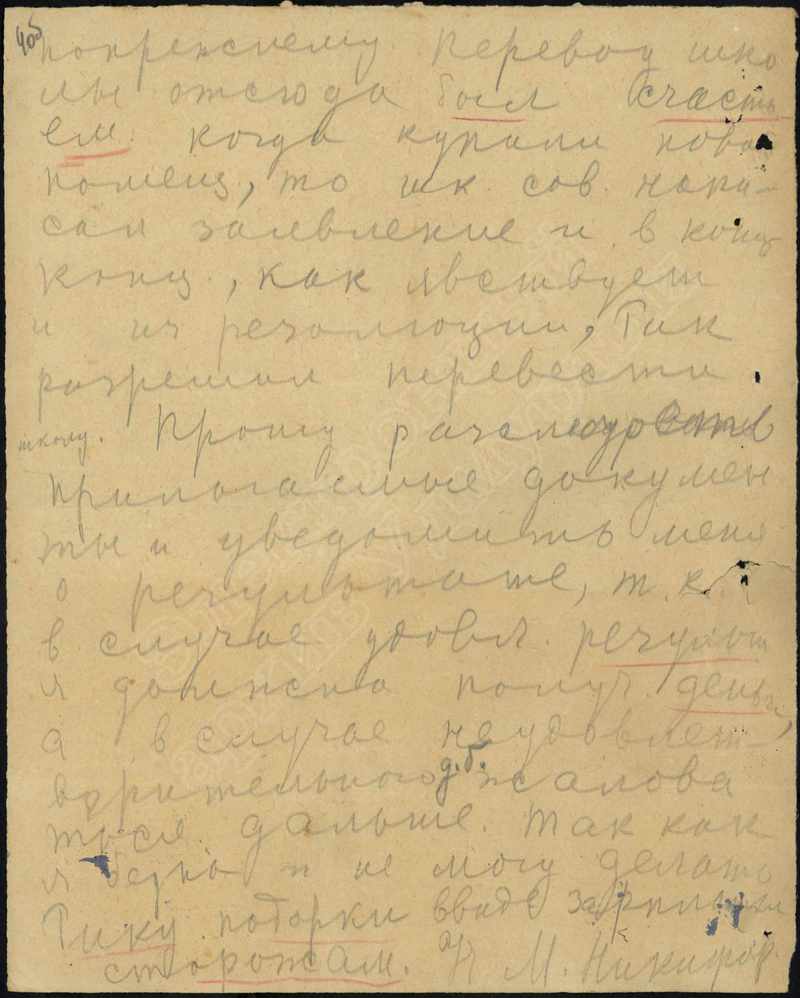 406
попрежнему. Перевод шко
лы отсюда был счасть
ем. когда купили новое
помещ, то шк. сов. напи-
сал заявление и в конц
конц., как явствует
и из резолюции, Гик
разрешил перевести
школу. Прошу расследовать
прилагаемые докумен
ты и уведомить меня
о результате, т. к.
в случае удовл. результ
я должна получ. деньги,
а в случае неудовлет-
ворительного д.б. жалова
ться дальше. Так как
я бедна и не могу делать
Гику подарки ввиде зарплаты
сторожам. М. Никифор.